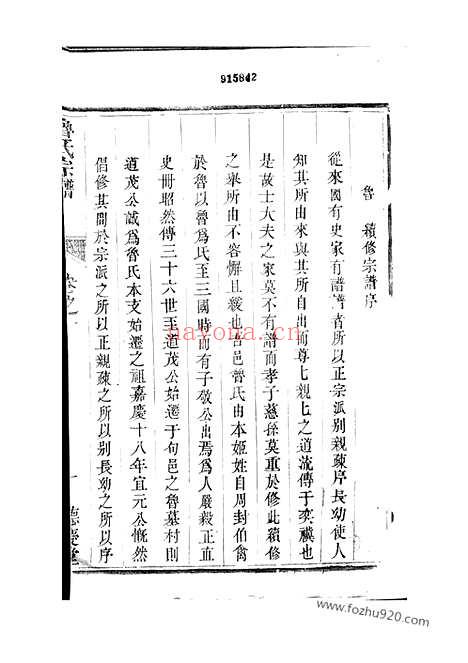 915842
魯 續修宗譜序
從來國有史家有譜譜者所以正宗派別親疎序長幼使人
知其所由來與其所自出而尊七親七之道流傳于奕禩也
是故士大夫之家莫不有譜而孝子慈孫莫重於修此續修
之舉所由不容懈且緩也古邑魯氏由本姬姓自周封伯禽
於魯以魯爲氏至三國時而有子敬公出焉爲人嚴毅正直
史冊昭然傳三十六世至道茂公始遷于句邑之魯墓村則
道茂公誠爲魯氏本支始遷之祖嘉慶十八年宜元公慨然
倡修其間於宗派之所以正親疎之所以别長幼之所以序
魯氏宗譜
卷之一
一
德慶堂
nayona.cn
www.fozhu920.com